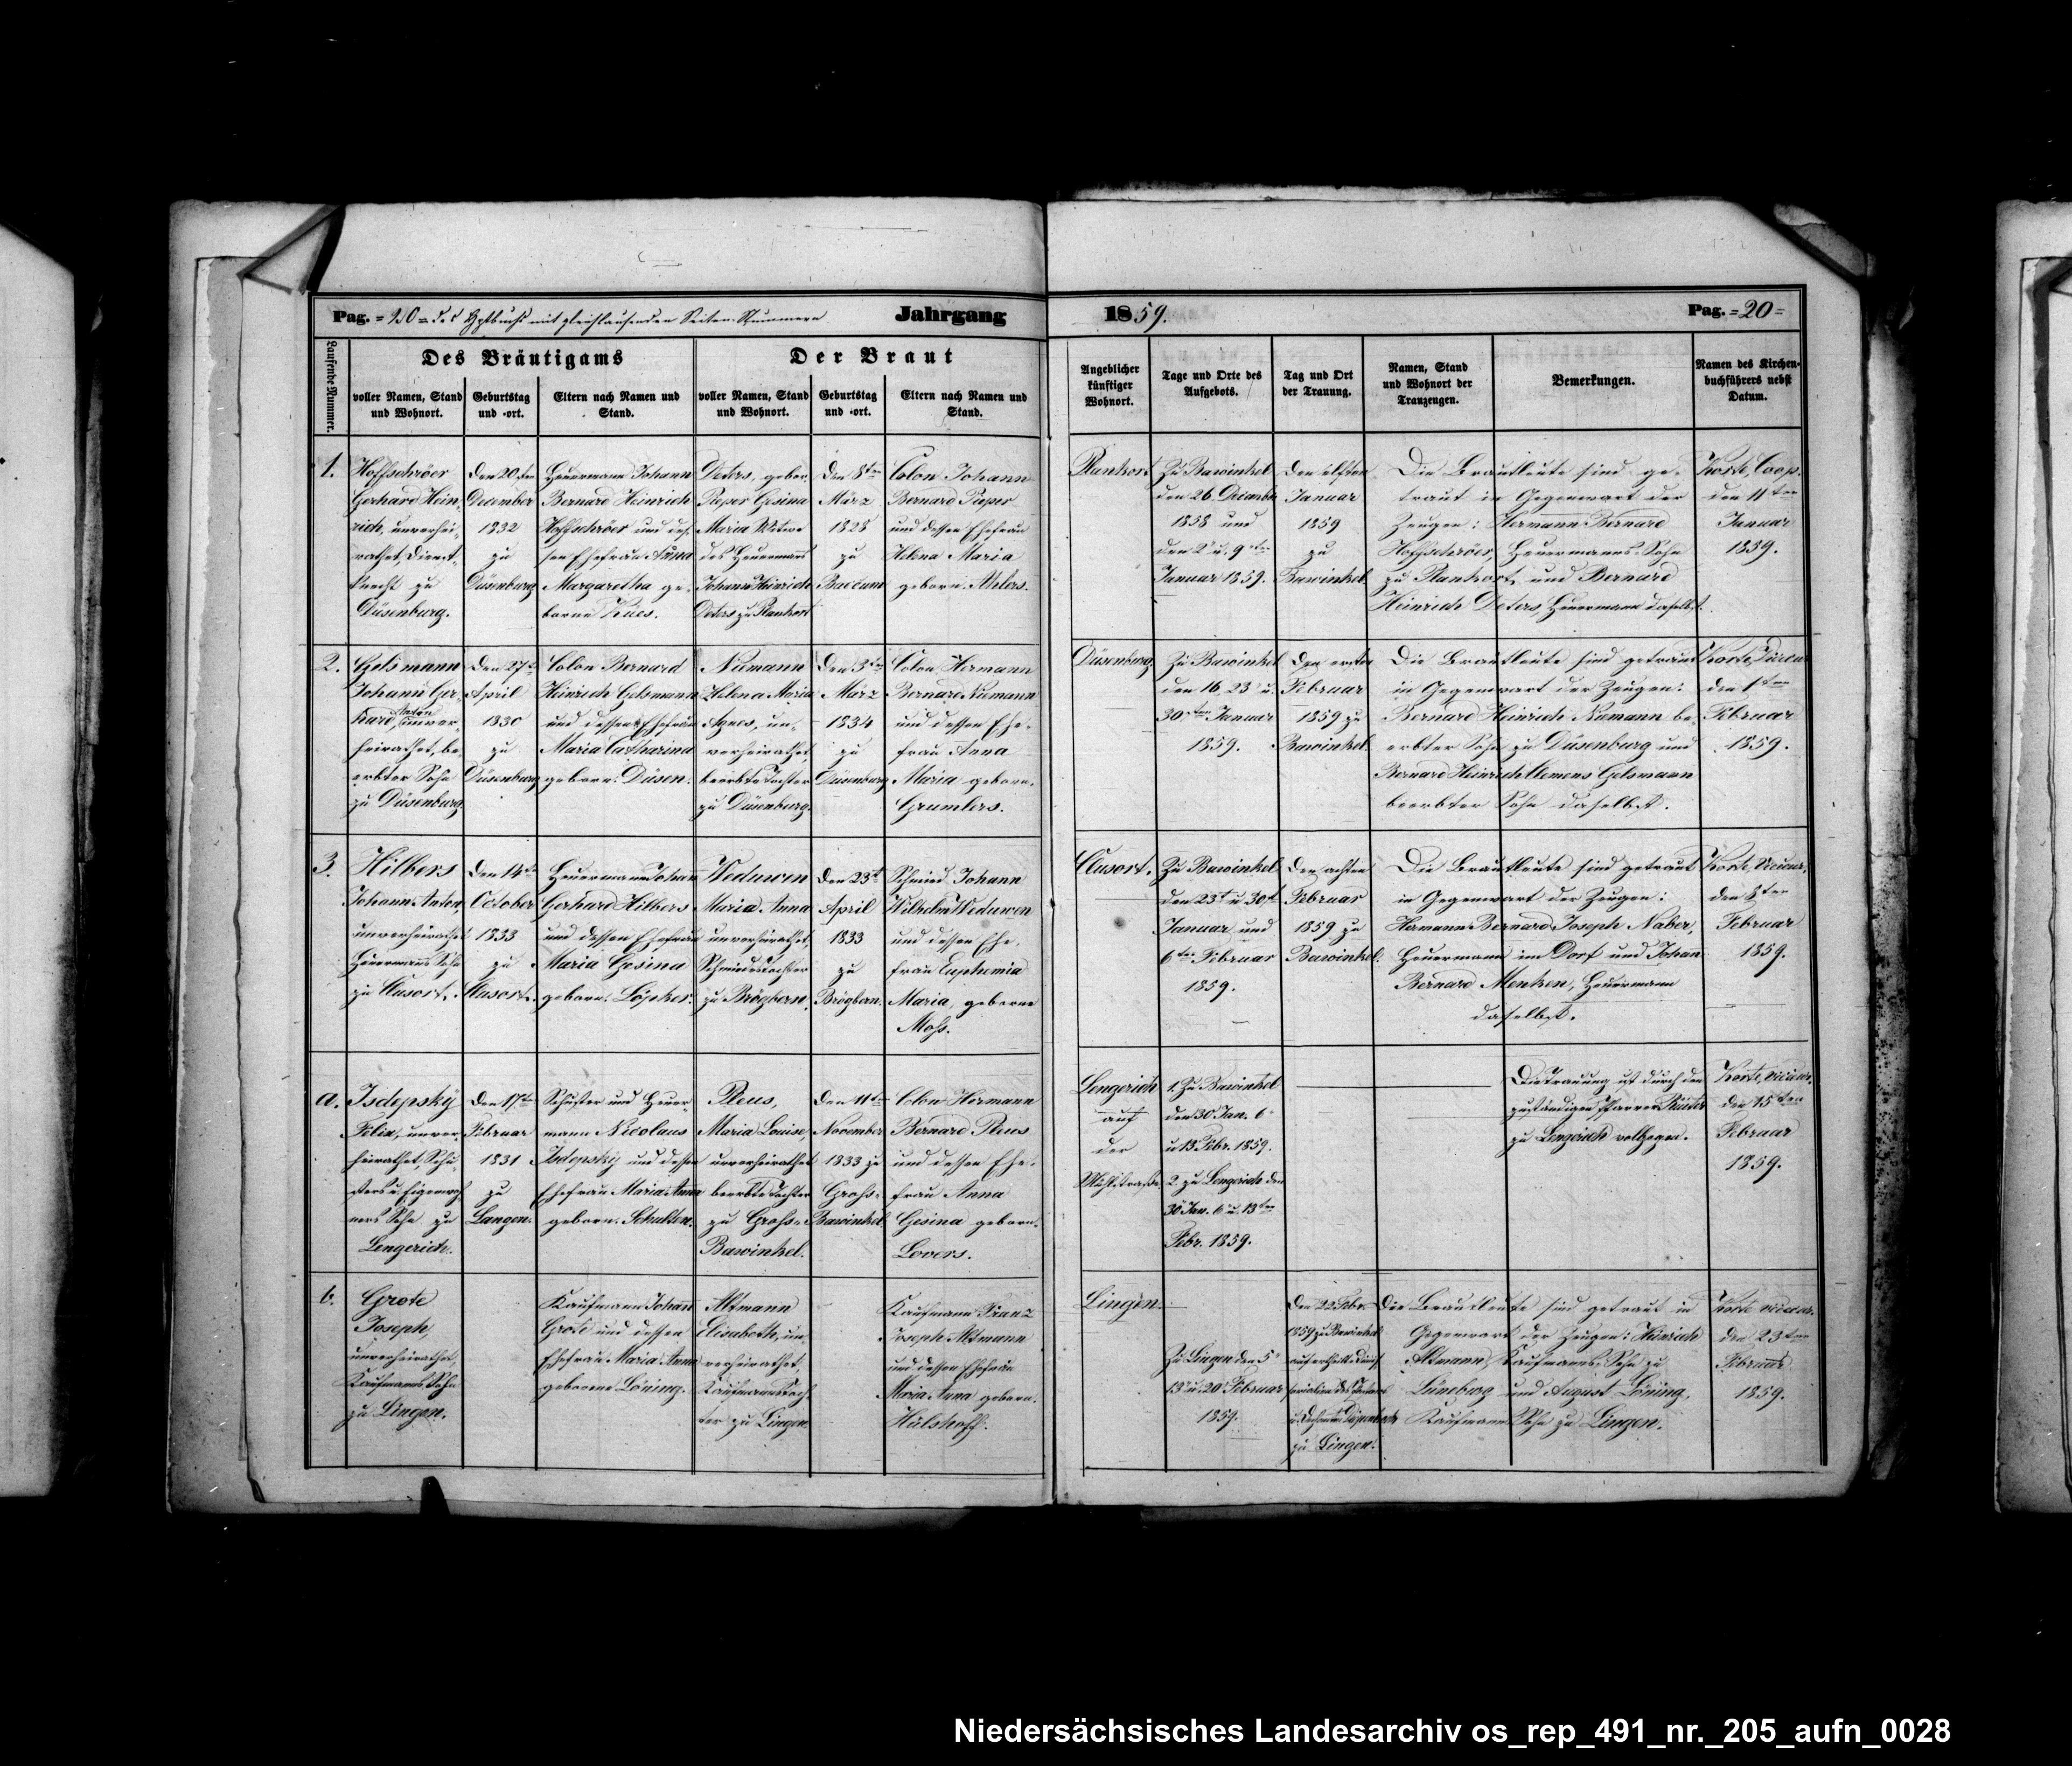 Pag. = 20 = des Hptbuchs mit gleichlaufenden Seiten-Nummern
Jahrgang
1859.
Pag. =20=
Laufende Nummer.
Des Bräutigams
voller Namen, Stand
und Wohnort.
Geburtstag
und -ort.
Eltern nach Namen und
Stand.
Der Braut
voller Namen, Stand
und Wohnort.
Geburtstag
und -ort.
Eltern nach Namen und
Stand.
Angeblicher
künftiger
Wohnort.
Tage und Orte des
Aufgebots.
Tag und Ort
der Trauung.
Namen, Stand
und Wohnort der
Trauzeugen.
Bemerkungen.
Namen des Kirchen-
buchführers nebst
Datum.
1.
Hoffschröer
Gerhard Hein-
rich, unverhei-
rathet, Dienst-
knecht zu
Düsenburg.
den 20ten
December
1832
zu
Düsenburg
Heuermann Johann
Bernard Heinrich
Hoffschröer und des-
sen Ehefrau Anna
Margaretha ge-
borne Kües.
Deters, gebor.
Pieper Gesina
Maria Witwe
des Heuermans
Johann Heinrich
Deters zu Plankort
den 8ten
März
1828
zu
Baccum
Colon Johann
Bernard Pieper
und dessen Ehefrau
Helena Maria
geborn. Ahlers.
Plankort
Zu Bawinkel
den 26. December
1858 und
den 2t u. 9ten
Januar 1859.
den elften
Januar
1859
zu
Bawinkel.
Die Brautleute sind ge-
traut in Gegenwart der
Zeugen: Hermann Bernard
Hoffschröer, Heuermanns-Sohn
zu Plankort, und Bernard
Heinrich Deters, Heuermann daselbst.
Korte, Coop.
den 11ten
Januar
1859.
2.
Gelsmann
Johann Ger-
hard Anton, unver-
heirathet, be-
erbter Sohn
zu Düsenburg
den 27t
April
1830
zu
Düsenburg
Colon Bernard
Heinrich Gelsmann
und dessen Ehefrau
Maria Catharina
geborn. Düsen.
Niemann
Helena Maria
Agnes, un-
verheirathet,
beerbte Tochter
zu Düsenburg.
den 3ten
März
1834
zu
Düsenburg
Colon Hermann
Bernard Niemann
und dessen Ehe-
frau Anna
Maria geborn.
Grumlers.
Düsenburg.
Zu Bawinkel
den 16. 23t u.
30ten Januar
1859.
den ersten
Februar
1859 zu
Bawinkel.
Die Brautleute sind getraut
in Gegenwart der Zeugen:
Bernard Heinrich Niemann be-
erbter Sohn zu Düsenburg und
Bernard Heinrich Clemens Gelsmann
beerbter Sohn daselbst.
Korte, Vicar
den 1ten
Februar
1859.
3.
Hilbers
Johann Anton,
unverheirathet
Heuermanns Sohn
zu Clusort.
den 14t
October
1833
zu
Clusort.
Heuermann Johann
Gerhard Hilbers
und dessen Ehefrau
Maria Gesina
geborn. Löpker.
Weduwen
Maria Anna
unverheirathet,
Schmiedestochter
zu Brögbern.
den 23t
April
1833
zu
Brögbern.
Schmied Johann
Wilhelm Weduwen
und dessen Ehe-
frau Euphemia
Maria, geborne
Mohs.
Clusort.
Zu Bawinkel
den 23t u 30t
Januar und
6ten Februar
1859.
den achten
Februar
1859 zu
Bawinkel.
Die Brautleute sind getraut
in Gegenwart der Zeugen:
Hermann Bernard Joseph Naber,
Heuermann im Dorf und Johann
Bernard Menken, Heuermann
daselbst.
Korte, Vicar,
den 8ten
Februar
1859.
a.
Isdepsky
Felix, unver-
heirathet, Schu-
sters u.
ners Sohn zu
Lengerich.
den 17ten
Februar
1831
zu
Langen.
Schuster und Heuer-
mann Nicolaus
Isdepsky und dessen
Ehefrau Maria Anna
geborn. Schulten.
Pleus,
Maria Louise,
unverheirathet
beerbte Tochter
zu Grohs-
Bawinkel.
den 11ten
November
1833 zu
Grohs-
Bawinkel
Colon Hermann
Bernard Pleus
und dessen Ehe-
frau Anna
Gesina geborn.
Lovers.
Lengerich
auf
der
1. Zu Bawinkel
den 30 Jan. 6t
u 13 Febr. 1859.
2. zu Lengerich den
30 Jan. 6t u. 13ten
Febr. 1859.
Die Trauung ist durch den
zuständigen Pfarrer
zu Lengerich vollzogen.
Korte, vicar,
den 15ten
Februar
1859.
b.
Grote
Joseph,
unverheirathet,
Kaufmanns Sohn
zu Lingen.
Kaufmann Johann
Grote und dessen
Ehefrau Maria Anna
geborene Löning.
Altmann
Elisabeth, un-
verheirathet,
Kaufmannstoch-
ter zu Lingen
Kaufmann Franz
Joseph Altmann
und dessen Ehefrau
Maria Anna geborn.
Hülshoff.
Lingen.
Zu Lingen den 5t
13t u. 20t Februar
1859.
den 22 Febr.
1859 zu Bawinkel
zu Lingen.
Die Brautleute sind getraut in
Gegenwart der Zeugen: Heinrich
Altmann, Kaufmanns-Sohn zu
Lüneburg und August Löning,
Kaufmanns Sohn zu Lingen.
Korte vicar.
den 23ten
Februar
1859.
Niedersächsisches Landesarchiv os_rep_491_nr._205_aufn_0028